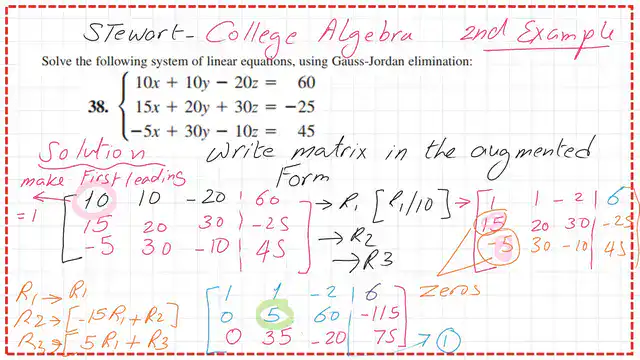 STewart - College Algebra 2nd Example
Solve the following system of linear equations, using Gauss-Jordan elimination:
10x + 10y − 20z = 60
38. 15x + 20y + 30z = −25
−5x + 30y − 10z = 45
Solution Write matrix in the augmented
make First leading Form
=1
10 10 -20 | 60
15 20 30 | -25
-5 30 -10 | 45
→ R1 [R1/10] →
→ R2
→ R3
1 1 -2 | 6
15 20 30 | -25
-5 30 -10 | 45
zeros
R1 → R1
R2 → [-15R1 + R2]
R3 → [5R1 + R3
1 1 -2 | 6
0 5 60 | -115
0 35 -20 | 75
→ 1